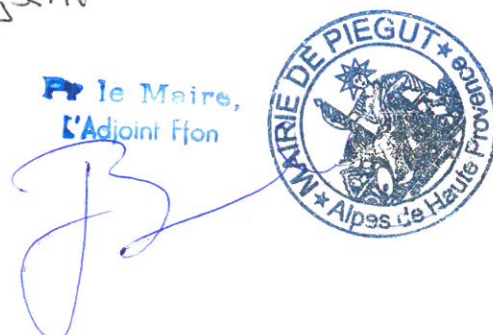 Pr le Maire,
L'Adjoint Ffon
MAIRIE DE PIEGUT
Alpes de Haute Provence